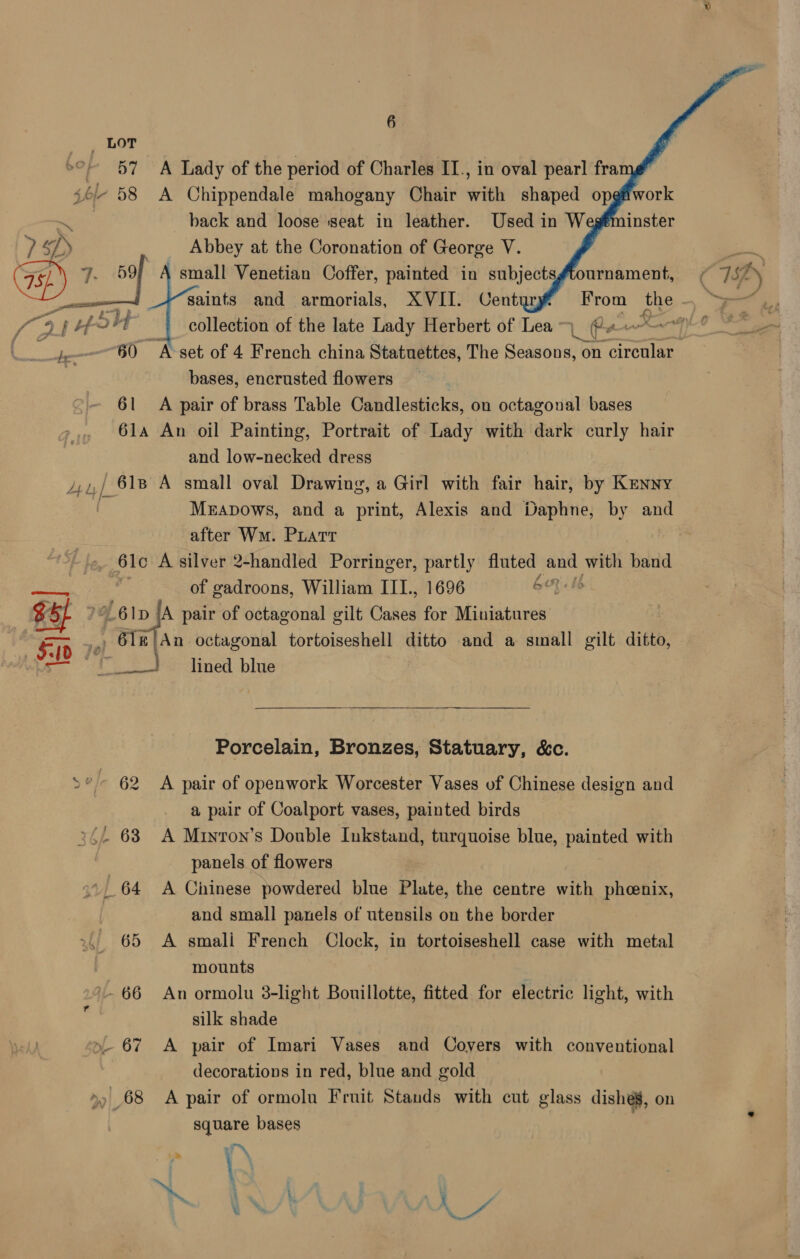 6
LOT
60/- 57 A Lady of the period of Charles II., in oval pearl frame
46/- 58 A Chippendale mahogany Chair with shaped openwork
back and loose seat in leather. Used in Westminster
Abbey at the Coronation of George V.
75/- 7. 59 A small Venetian Coffer, painted in subjects, tournament,
saints and armorials, XVII. Century. From the
collection of the late Lady Herbert of Lea
60 A set of 4 French china Statuettes, The Seasons, on circular
bases, encrusted flowers
61 A pair of brass Table Candlesticks, on octagonal bases
61A An oil Painting, Portrait of Lady with dark curly hair
and low-necked dress
61B A small oval Drawing, a Girl with fair hair, by KENNY
MEADOWS, and a print, Alexis and Daphne, by and
after WM. PLATT
61C A silver 2-handled Porringer, partly fluted and with band
of gadroons, William III., 1696
85/- 61D A pair of octagonal gilt Cases for Miniatures
5.10 61E An octagonal tortoiseshell ditto and a small gilt ditto,
lined blue
Porcelain, Bronzes, Statuary, &c.
62 A pair of openwork Worcester Vases of Chinese design and
a pair of Coalport vases, painted birds
63 A MINTON'S Double Inkstand, turquoise blue, painted with
panels of flowers
64 A Chinese powdered blue Plate, the centre with phœnix,
and small panels of utensils on the border
65 A small French Clock, in tortoiseshell case with metal
mounts
66 An ormolu 3-light Bouillotte, fitted for electric light, with
silk shade
67 A pair of Imari Vases and Covers with conventional
decorations in red, blue and gold
68 A pair of ormolu Fruit Stands with cut glass dishes, on
square bases